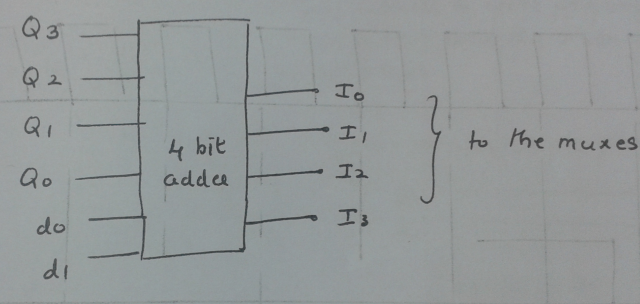 Q3
Q2
Q1
Q0
d0
d1
4 bit
adder
I0
I1
I2
I3
to the muxes